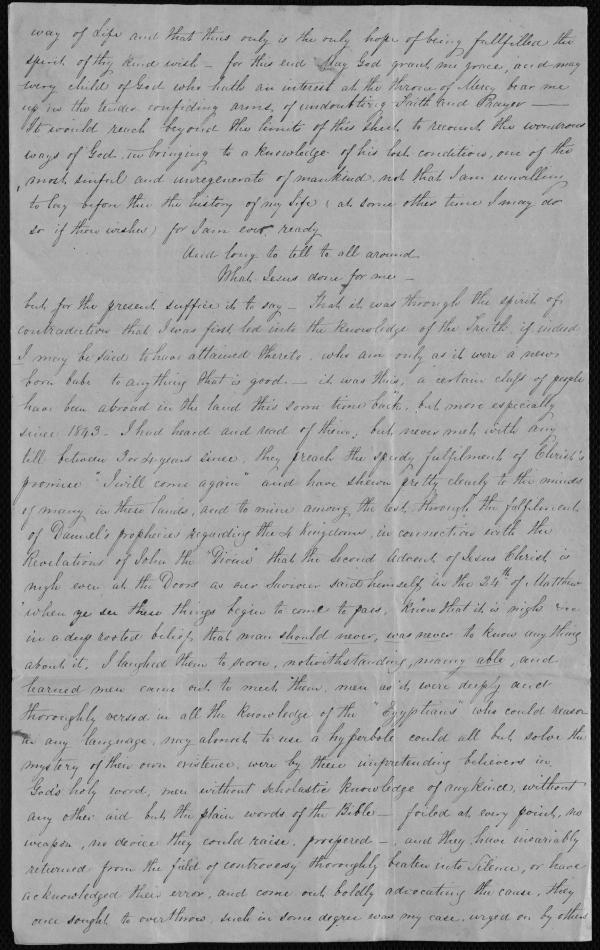 way of Life and that thus only is the only hope of being fullfilled the
spirit of thy kind wish — for this end May God grant me grace, and may
every child of God who hath an interest at the throne of Mercy bear me
up in the tender confiding arms, of undoubting Faith and Prayer —
It would reach beyond the limits of this sheet to recount the wondrous
ways of God in bringing to a knowledge of his lost condition, one of the
most sinful and unregenerate of mankind, not that I am unwilling
to lay before thee the history of my life (at some other time I may do
so if thou wishes) for I am ever ready
And long to tell to all around
What Jesus done for me —
but for the present suffice it to say — That it was through the spirit of
contradiction that I was first led into the knowledge of the Truth, if indeed
I may be said to have attained thereto, who am only as it were a new
born babe to anything that is good. — it was this, a certain class of people
have been abroad in the land this some time back, but more especially
since 1843 — I had heard and read of them, but never met with any
till between 3 or 4 years since, they preach the speedy fulfilment of Christ's
promise "I will come again" and have shewn pretty clearly to the minds
of many in these lands, and to mine among the rest, through the fulfilment
of Daniel's prophecies regarding the 4 Kingdoms, in connection with the
Revelations of John the "Divine" that the Second Advent of Jesus Christ is
nigh even at the Doors as our Saviour said himself in the 24th of Matthew
"when ye see these things begin to come to pass, know that it is nigh
in a deep rooted belief, that man should never, was never to know any thing
about it. I laughed them to scorn, notwithstanding, many able, and
learned men came out to meet them, men as it were deeply and
thoroughly versed in all the knowledge of the "Egyptians" who could reason
in any language, nay almost to use a hyperbole could all but solve the
mystery of their own existence, were by these unpretending believers in
God's holy word, men without scholastic knowledge of any kind, without
any other aid but the plain words of the Bible — foiled at every point, no
weapon, no device they could raise, prospered — and they have invariably
returned from the field of controversy thoroughly beaten into silence, or have
acknowledged their error, and come out boldly advocating the cause, they
once sought to overthrow, such in some degree was my case, urged on by others